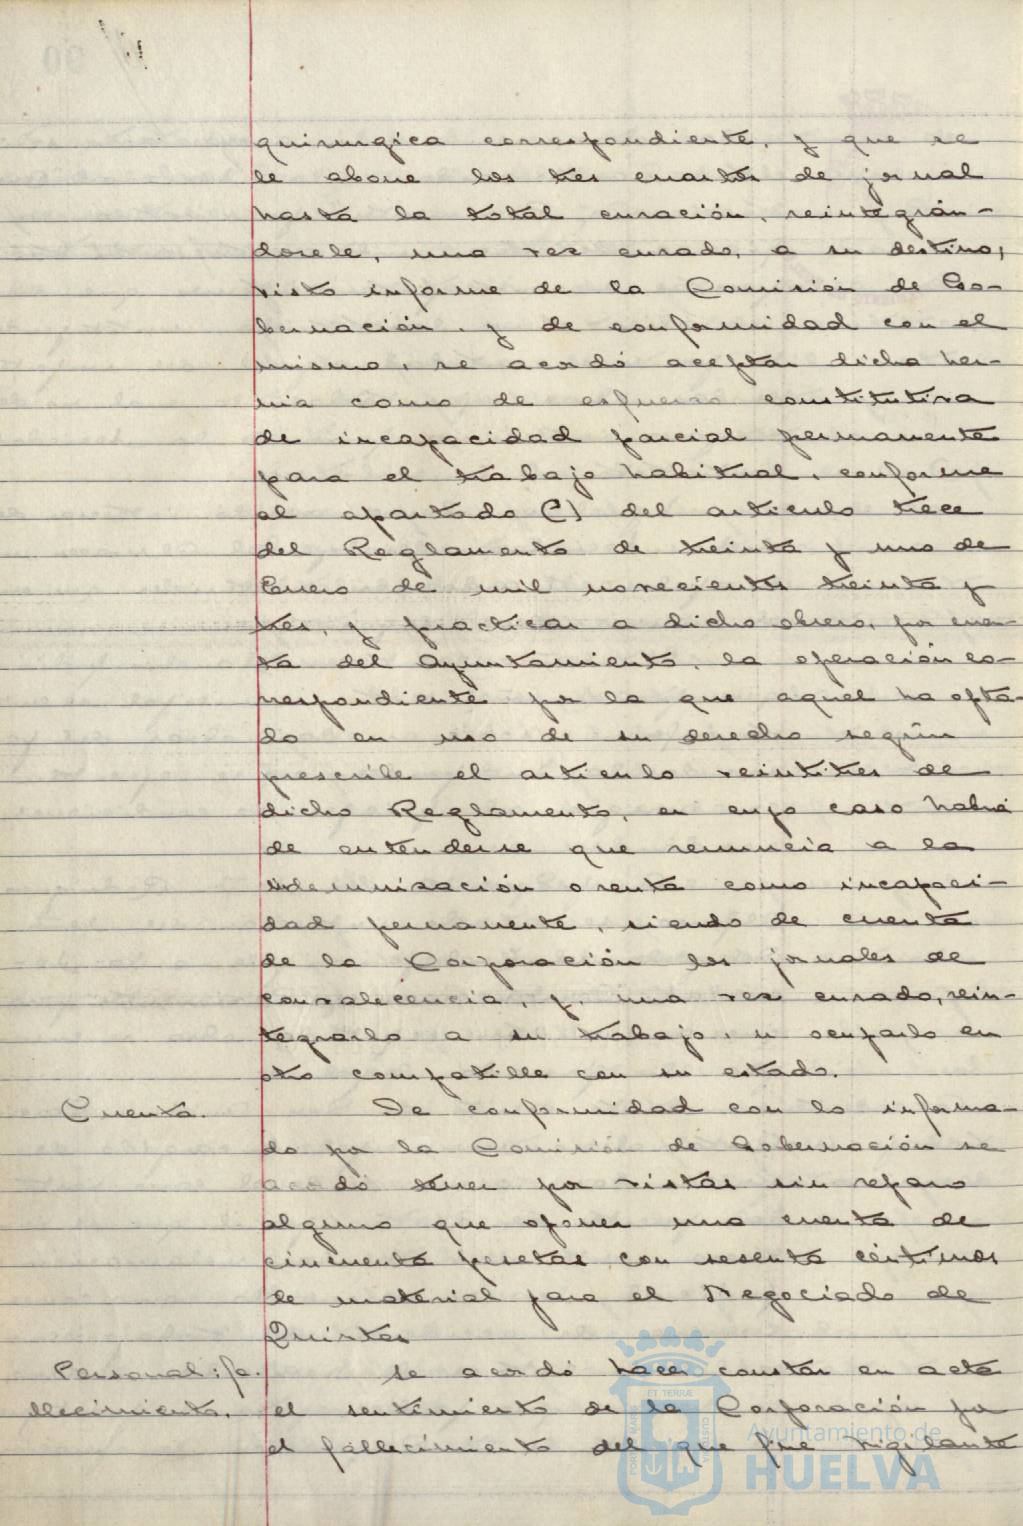 quirurgica correspondiente, y que se
le abone los tres cuartos de jornal
hasta la total curación, reintegrán-
dosele, una vez curado, a su destino,
visto informe de la Comisión de Go-
bernación, y de conformidad con el
mismo, se acordó aceptar dicha her-
nia como de esfuerzo constitutiva
de incapacidad parcial permanente
para el trabajo habitual, conforme
al apartado C) del articulo trece
del Reglamento de treinta y uno de
Enero de mil novecientos treinta y
tres, y practicar a dicho obrero, por cuen-
ta del Ayuntamiento, la operación co-
rrespondiente por la que aquel ha opta-
do en uso de su derecho según
prescribe el articulo veintitres de
dicho Reglamento, en cuyo caso habrá
de entenderse que renuncia a la
indemnización o renta como incapaci-
dad permanente, siendo de cuenta
de la Corporación los jornales de
convalecencia, y, una vez curado, rein-
tegrarlo a su trabajo, u ocuparlo en
otro compatible con su estado.
Cuenta. De conformidad con lo informa-
do por la Comisión de Gobernación se
acordó tener por vistas sin reparo
alguno que oponer una cuenta de
cincuenta pesetas con sesenta céntimos
de material para el Negociado de
Quintas
Personal: fa- Se acordó hacer constar en acta
llecimiento. el sentimiento de la Corporación por
el fallecimiento del que fue vigilante
Ayuntamiento de
HUELVA